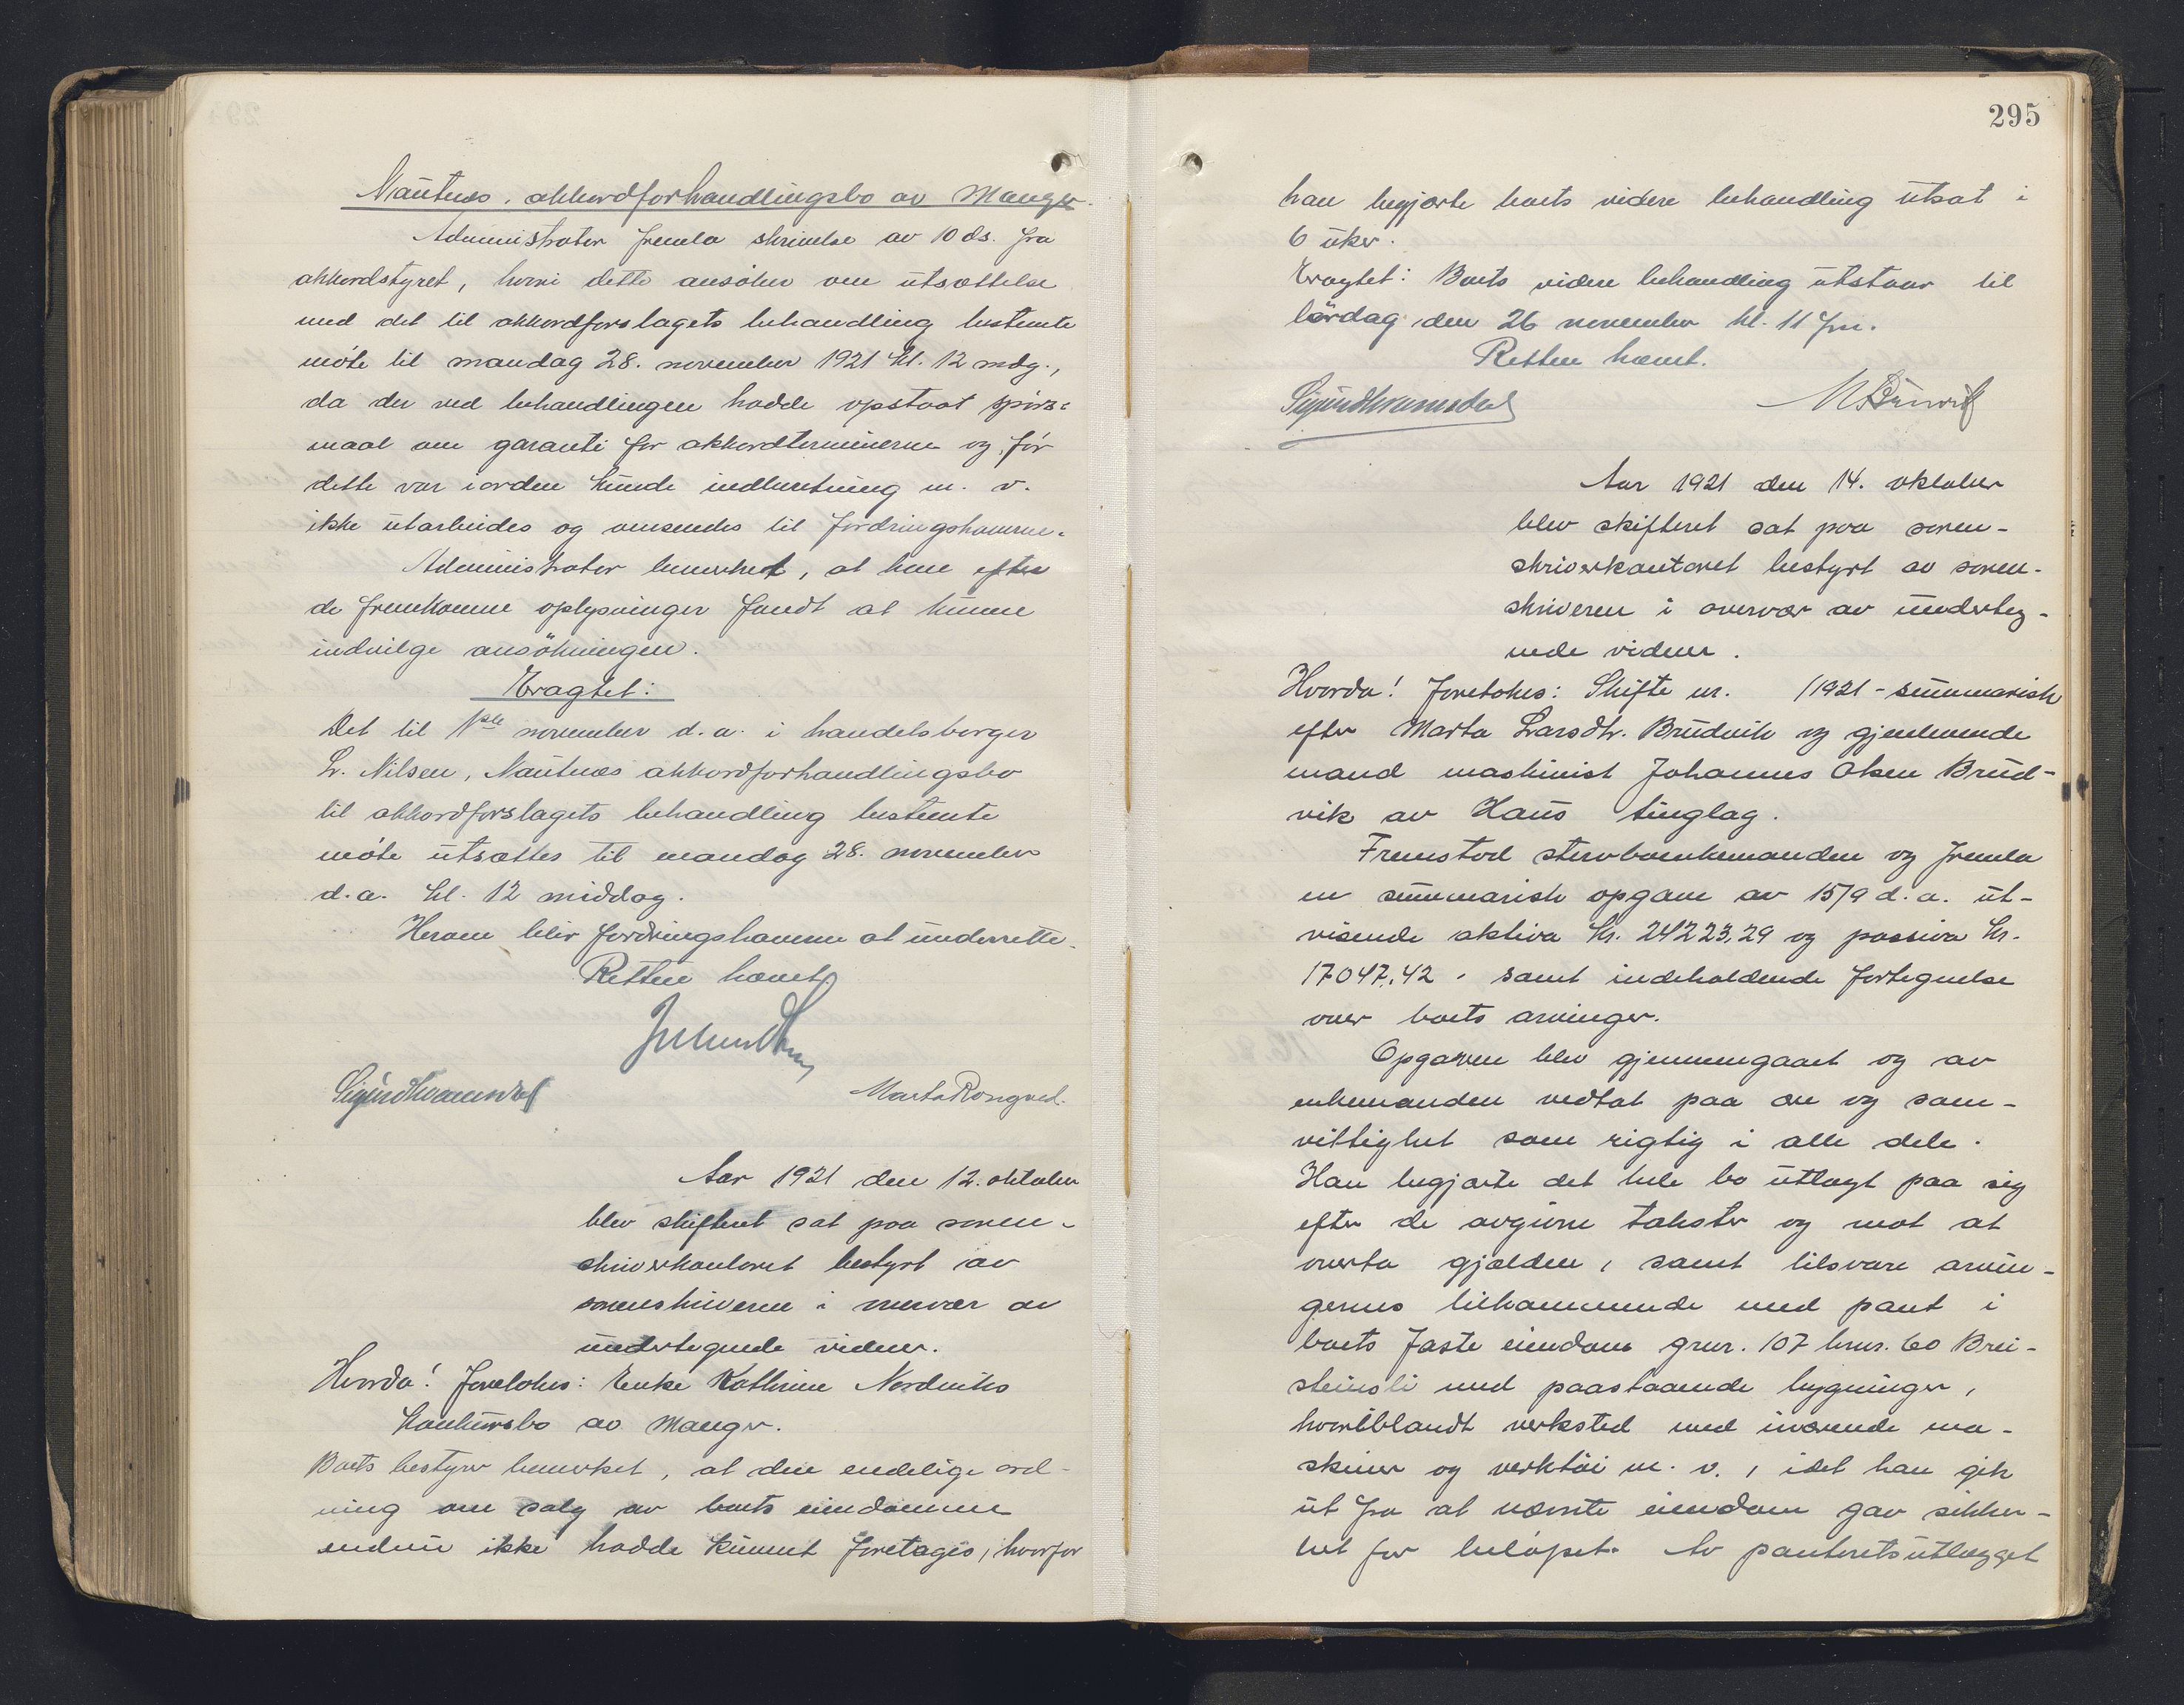 Nautnes, akkordforhandlingsbo av Manger.
Administrator fremla skrivelse av 10 ds. fra
akkordstyret, hvori dette ansöker om utsættelse
med det til akkordforslagets behandling bestemte
möte til mandag 28. november 1921 kl. 12 mdg.,
da der ved behandlingen hadde opstaat spörs-
maal om garanti for akkordterminerne og för
dette var iorden kunde indberetning m. v.
ikke utarbeides og omsendes til fordringshaverne.
Administrator bemerket, at han efter
de fremkomne oplysninger fandt at kunne
indvilge ansökningen.
Eragtet:
Det til 1ste november d.a. i handelsborger
L. Nilsen, Nautnes akkordforhandlingsbo
til akkordforslagets behandling bestemte
möte utsættes til mandag 28. november
d.a. kl. 12 middag.
Herom blir fordringshaverne at underrette.
Retten hævet
Sigurd Kvamsdal
Marta Rongved.
Aar 1921 den 12. oktober
blev skifteret sat paa soren-
skriverkontoret bestyrt av
sorenskriveren i overvær av
undertegnede vidner.
Hvorda! Foretokes: Enke Kathrine Nordviks
konkursbo av Manger.
Boets bestyrer bemerket, at den endelige ord-
ning om salg av boets eiendomme
endnu ikke hadde kunnet foretages, hvorfor
295
han begjærte boets videre behandling utsat i
6 uker.
Eragtet: Boets videre behandling utstaar til
lördag den 26 november kl. 11 fm.
Retten hævet.
Sigurd Kvamsdal
Aar 1921 den 14. oktober
blev skifteret sat paa soren-
skriverkontoret bestyrt av soren-
skriveren i overvær av underteg-
nede vidner.
Hvorda! Foretokes: Skifte nr. /1921 - summarisk
efter Marta Larsdtr. Brudvik og gjenlevende
mand maskinist Johannes Olsen Brud-
vik av Haus tinglag.
Fremstod stervboenkemanden og fremla
en summarisk opgave av 15/9 d.a. ut-
visende aktiva kr. 24223,29 og passiva kr.
17047,42, samt indeholdende fortegnelse
over boets arvinger.
Opgaven blev gjennemgaaet og av
enkemanden vedtat paa ære og sam-
vittighet som rigtig i alle dele.
Han begjærte det hele bo utlagt paa sig
efter de avgivne takster og mot at
overta gjælden, samt tilsvare arvin-
gernes tilkommende med pant i
boets faste eiendom gnr. 107 bnr. 60 Brei-
steinsli med paastaaende bygninger,
hvoriblandt verksted med iværende ma-
skiner og verktöi m. v., idet han gik
ut fra at nævnte eiendom gav sikker-
het for belöpet. Av panteretsutlægget